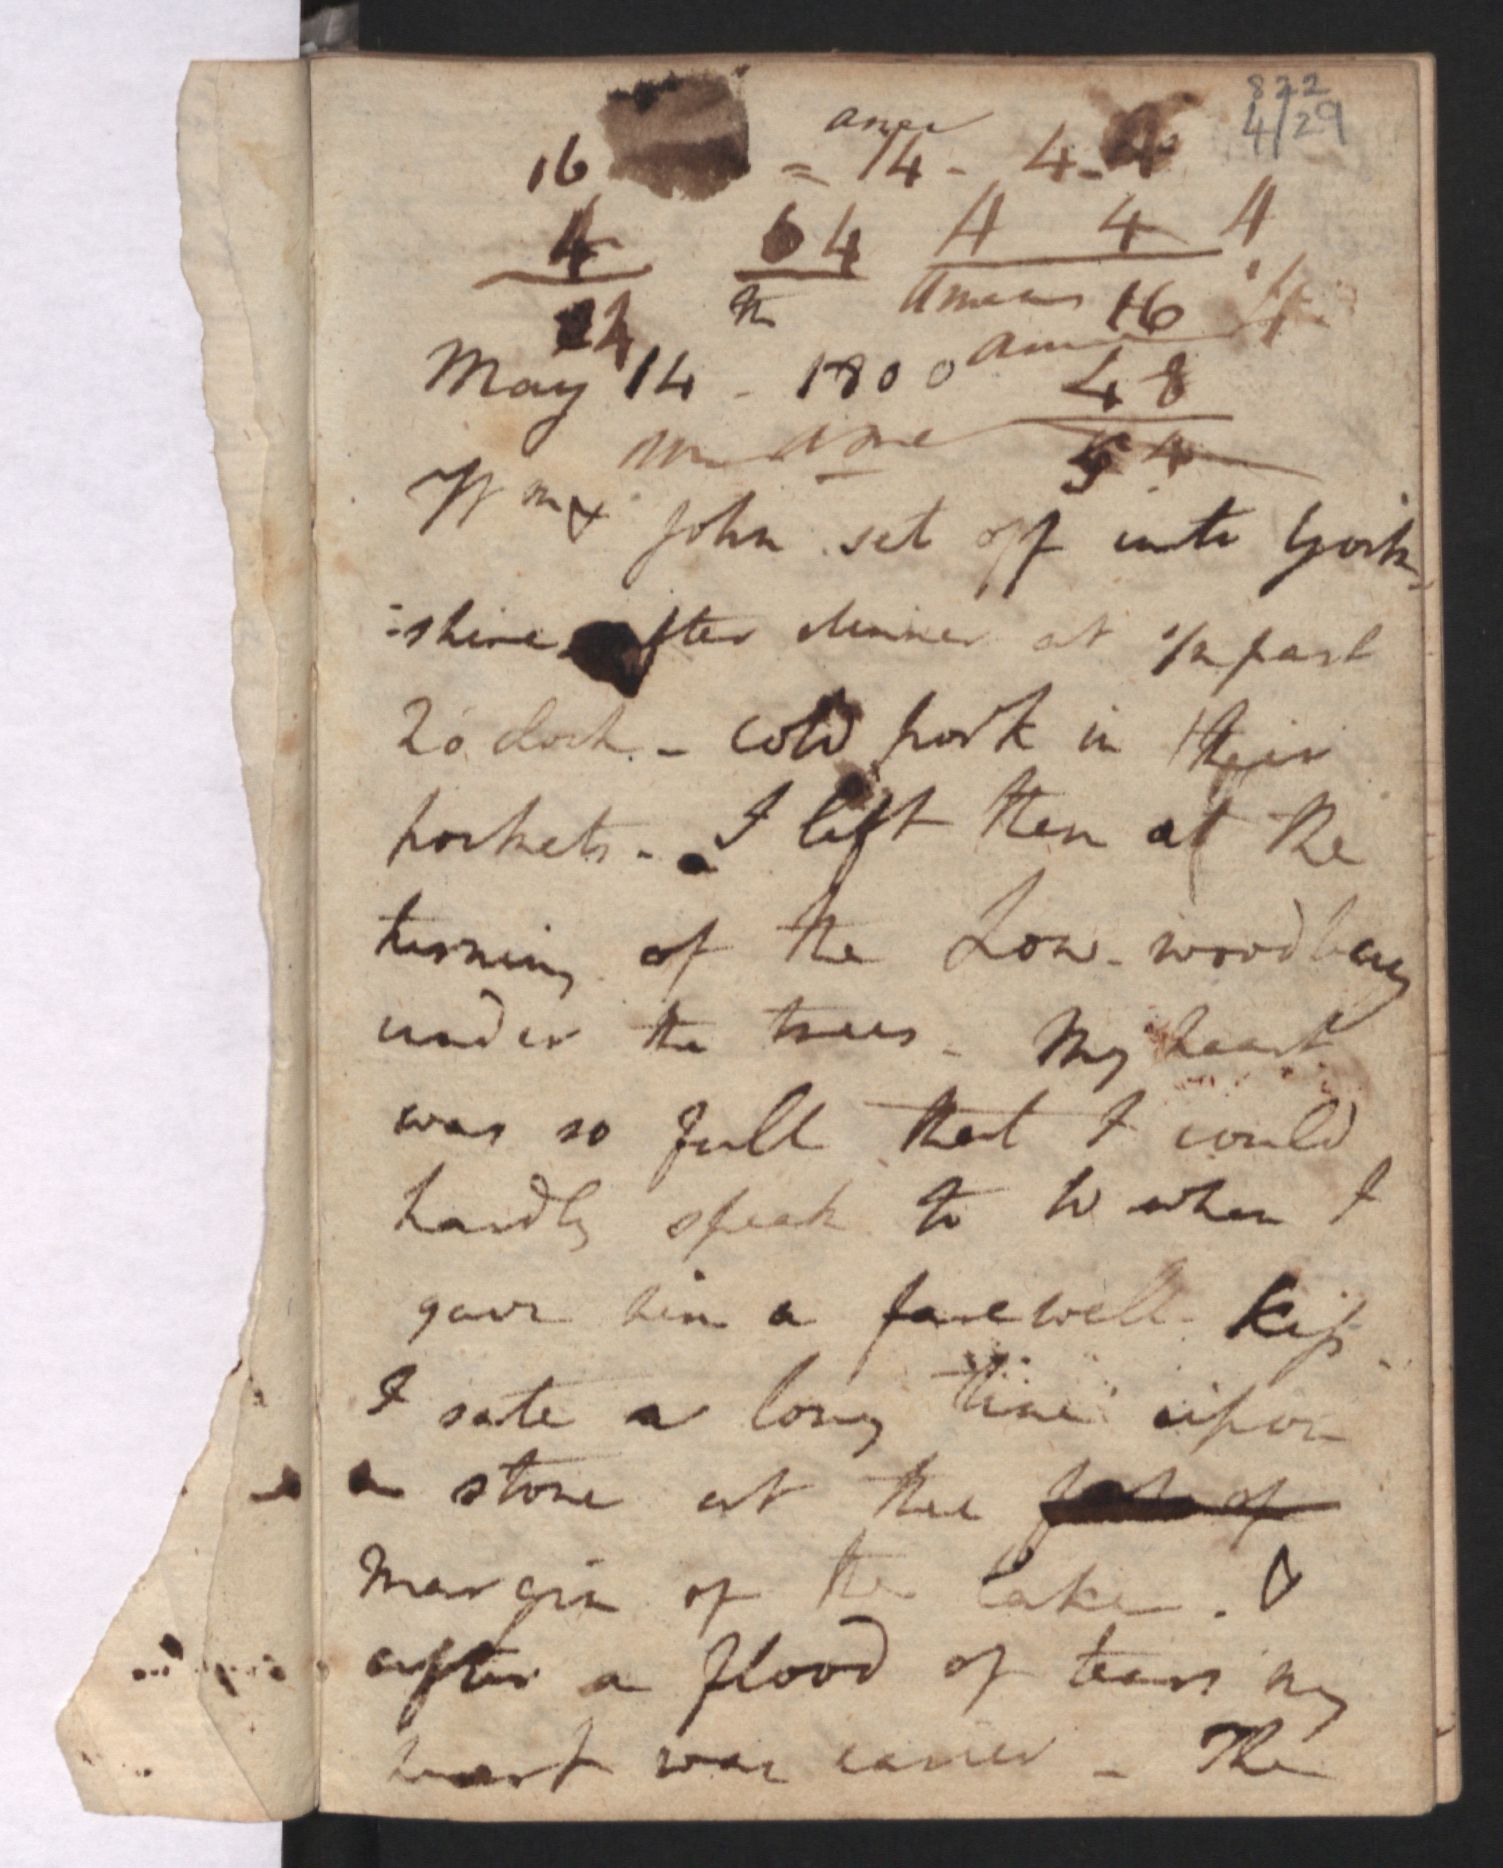 822
4/29
16 = 14 - 4 - 4
4 64 4 4 4
24 16
May 14 - 1800
48
54
Wm & John set off into York-
:shire after dinner at 1/2 past
2 o'clock - cold pork in their
pockets - I left them at the
turning of the Low-wood bay
under the trees - My heart
was so full that I could
hardly speak to W when I
gave him a farewell kiss.
I sate a long time upon
a stone at the
margin of the lake, &
after a flood of tears my
heart was easier - The